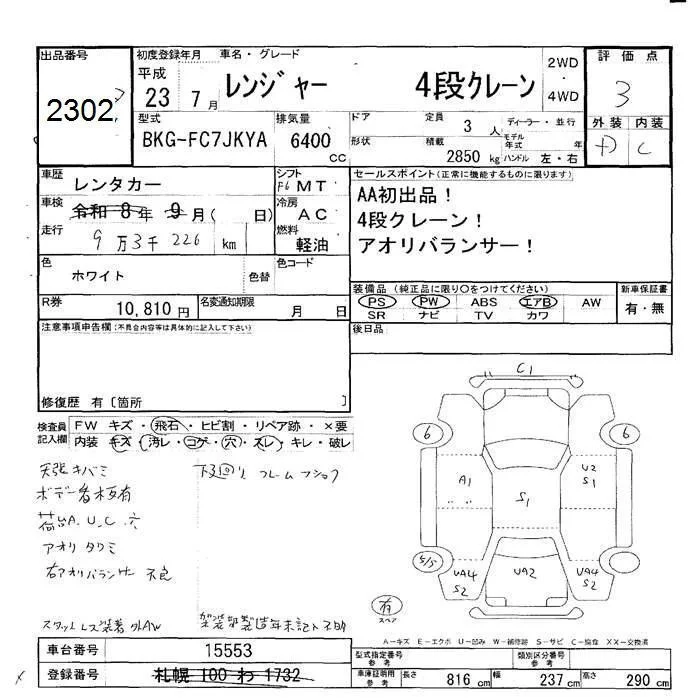 出品番号
2302
初度登録年月 車名・グレード
平成 23 7月
レンジャー 4段クレーン
2WD・4WD
評価点
3
外装 内装
D C
型式 排気量 ドア 定員 ディーラー・並行
BKG-FC7JKYA 6400cc 3人
形状 積載 モデル年式 年
2850kg ハンドル 左・右
車歴 レンタカー
シフト F6 MT
セールスポイント(正常に機能するものに限ります)
車検 令和8年9月( 日)
冷房 AC
AA初出品！
4段クレーン！
アオリバランサー！
走行 9万3千226km
燃料 軽油
色 ホワイト 色替
色コード
装備品(純正品に限り○をつけてください) 新車保証書
PS PW ABS エアB AW 有・無
SR ナビ TV カワ
R券 10,810円
名変通知期限 月 日
注意事項申告欄(不具合内容等は具体的に記入して下さい)
後日品
修復歴 有[箇所 ]
検査員記入欄
FW キズ・飛石・ヒビ割・リペア跡・×要
内装 キズ・汚レ・コゲ・穴・スレ・キレ・破レ
天張キバミ
下廻り フレームフショク
ボデー看板有
荷台A.U.C.穴
アオリタワミ
右アオリバランサー不良
架装部製造年未記入不明
C1
6 6
A1
S1
U2
S1
5/5
UA4
S2
UA2
UA4
S2
有
スペア
A-キズ E-エクボ U-凹み W-補修跡 S-サビ C-腐食 XX-交換済
車台番号 15553
登録番号 札幌 100 わ 1732
型式指定番号 参考 類別区分番号 参考
車庫証明用 参考 長さ 816cm 幅 237cm 高さ 290cm